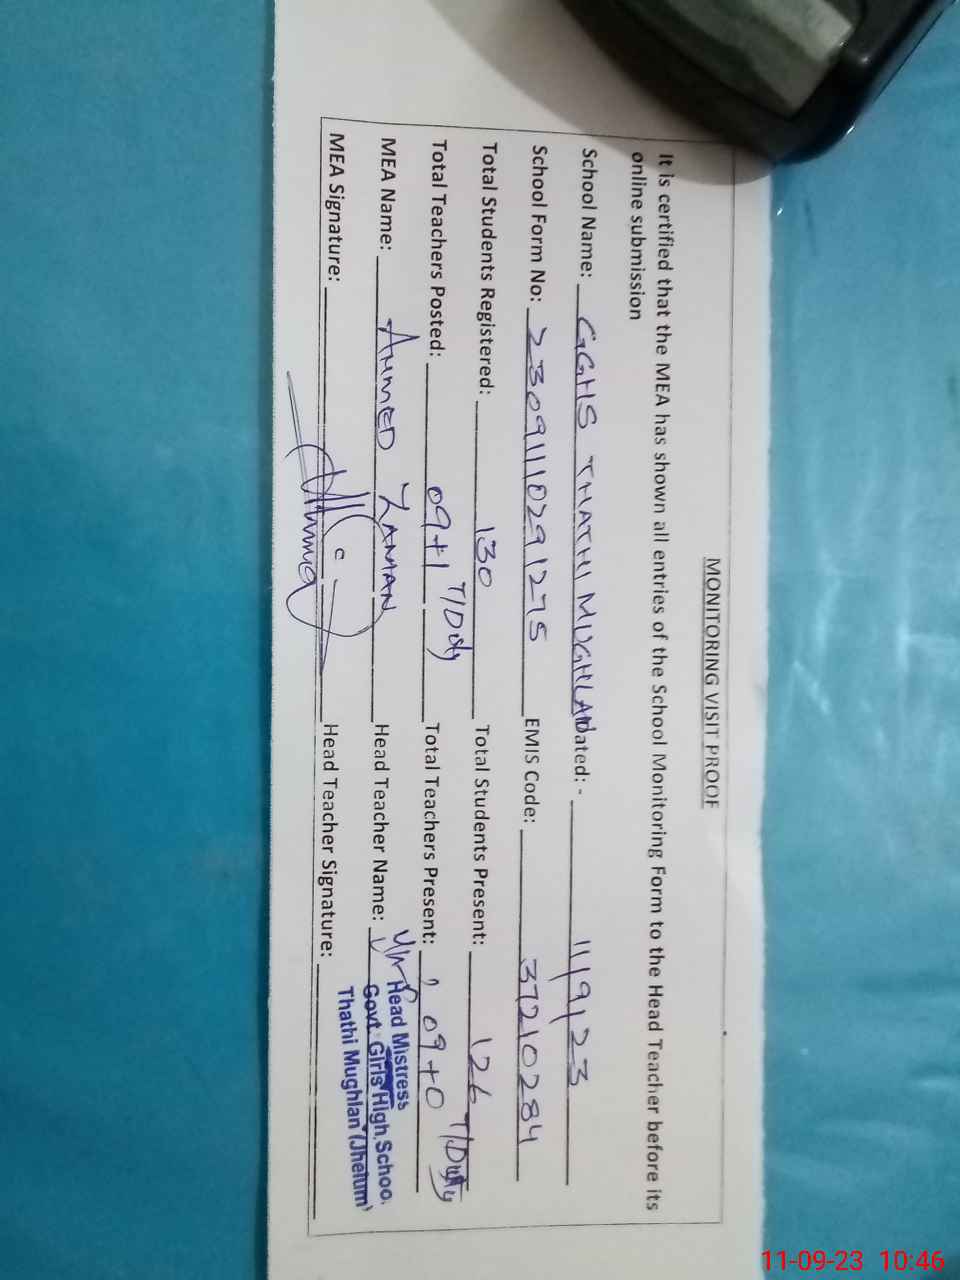 MONITORING VISIT PROOF
It is certified that the MEA has shown all entries of the School Monitoring Form to the Head Teacher before its
online submission
School Name: GGHS THATHI MUGHLAN Dated: - 11/9/23
School Form No: 23091110291275 EMIS Code: 37210284
Total Students Registered: 130 Total Students Present: 126
Total Teachers Posted: 09+1 T/Duty Total Teachers Present: 09+0 T/Duty
MEA Name: AHMED ZAMAN Head Teacher Name:
MEA Signature: Head Teacher Signature:
Head Mistress
Govt: Girls High Schoo
Thathi Mughlan (Jhelum)
11-09-23 10:46